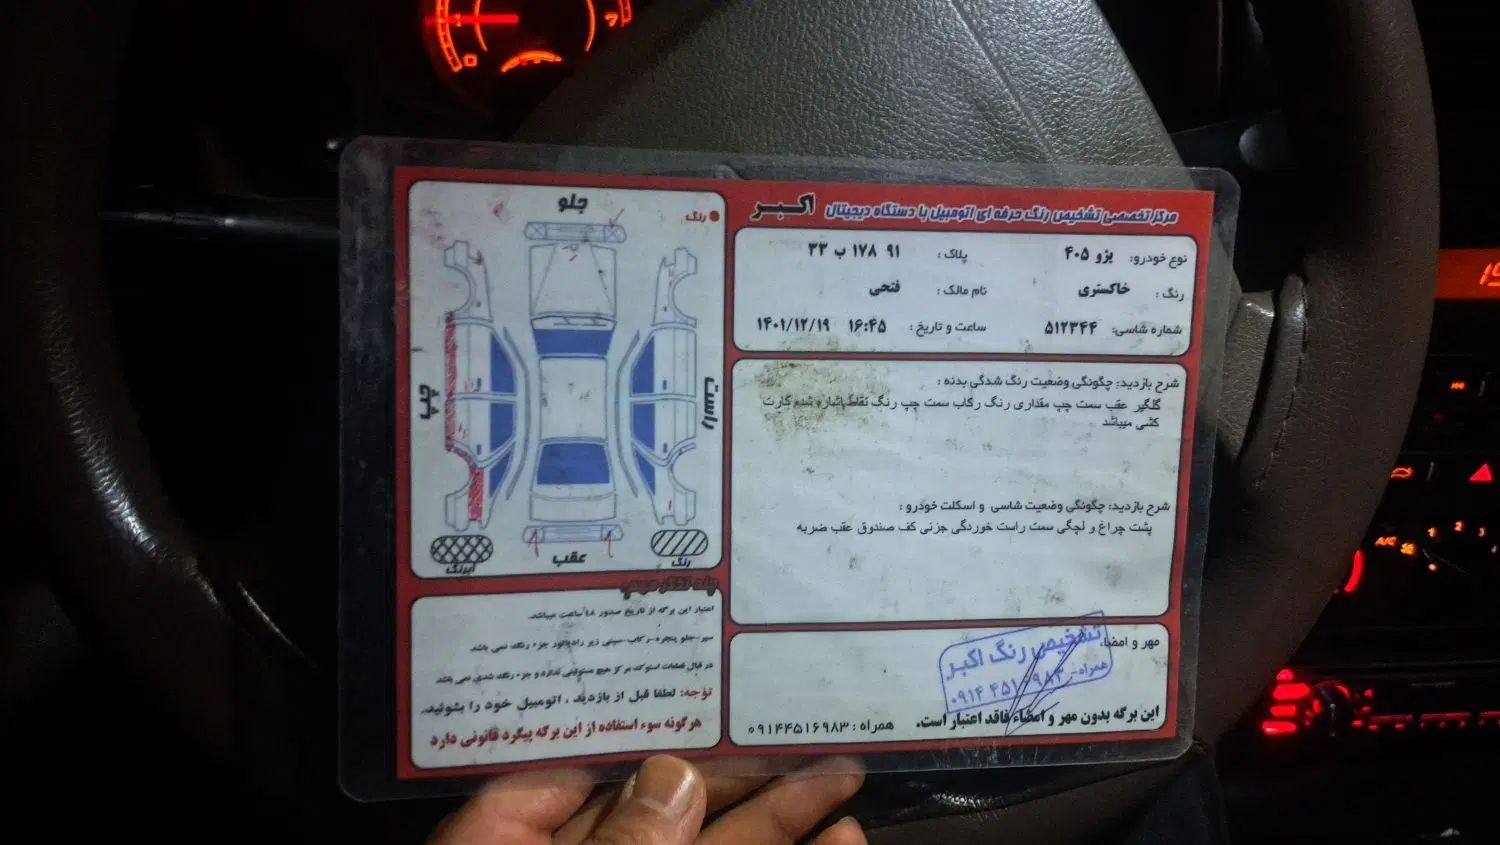 مرکز تخصصی تشخیص رنگ حرفه ای اتومبیل با دستگاه دیجیتال اکبر
نوع خودرو: پژو ۴۰۵ پلاک: ۹۱ ۱۷۸ ب ۳۳
رنگ: خاکستری نام مالک: فتحی
شماره شاسی: ۵۱۲۳۴۴ ساعت و تاریخ: ۱۶:۴۵ ۱۴۰۱/۱۲/۱۹
شرح بازدید: چگونگی وضعیت رنگ شدگی بدنه:
گلگیر عقب سمت چپ مقداری رنگ رکاب سمت چپ رنگ نقاط اشاره شده کارت
کشی میباشد
شرح بازدید: چگونگی وضعیت شاسی و اسکلت خودرو:
پشت چراغ و لچگی سمت راست خوردگی جزئی کف صندوق عقب ضربه
مهر و امضا:
تشخیص رنگ اکبر
همراه: ۰۹۱۴ ۴۵۱ ۰۹۸۳
این برگه بدون مهر و امضاء فاقد اعتبار است.
همراه: ۰۹۱۴۴۵۱۶۹۸۳
جلو
رنگ
چپ
راست
عقب
آبرنگ
رنگ
چند تذکر مهم:
اعتبار این برگه از تاریخ صدور ۴۸ ساعت میباشد.
سپر-جلو پنجره-رکاب-سینی زیر رادیاتور جزء رنگ نمی باشد
در قبال قطعات استوک مرکز هیچ مسئولیتی ندارد و جزء رنگ شدی نمی باشد
توجه: لطفا قبل از بازدید، اتومبیل خود را بشوئید.
هرگونه سوء استفاده از این برگه پیگرد قانونی دارد